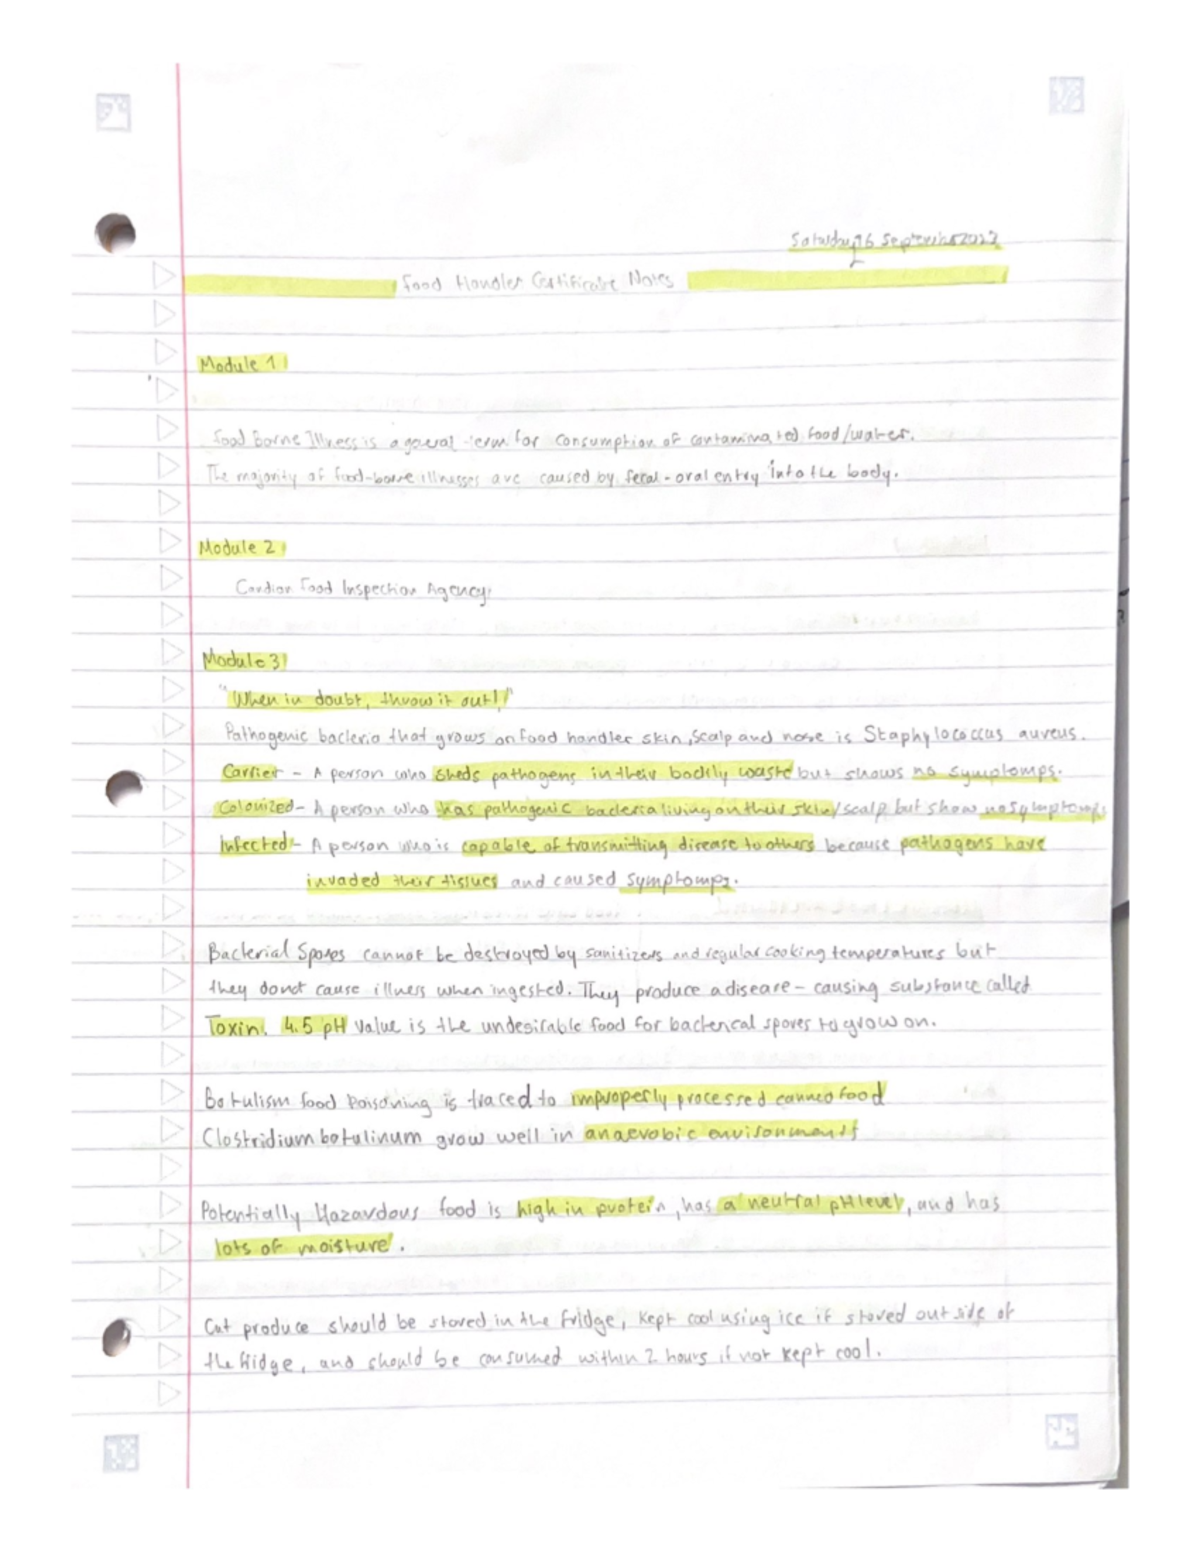 Saturday, 16 September 2023
Food Handler Certificate Notes
Module 1
Food Borne Illness is a general term for consumption of contaminated food/water.
The majority of food-borne illnesses are caused by fecal-oral entry into the body.
Module 2
Food Inspection Agency
Module 3
"When in doubt, throw it out!"
Pathogenic bacteria that grows on food handler skin, scalp and nose is Staphylococcus aureus.
Carrier - A person who sheds pathogens in their bodily waste but shows no symptomps.
Colonized - A person who has pathogenic bacteria living on their skin/scalp but show no symptomps
Infected - A person who is capable of transmitting disease to others because pathogens have
invaded their tissues and caused symptomps.
Bacterial Spores cannot be destroyed by sanitizers and regular cooking temperatures but
they donot cause illness when ingested. They produce a disease-causing substance called
Toxin. 4.5 pH value is the undesirable food for bacterical spores to grow on.
Botulism food poisoning is traced to improperly processed canned food
Clostridium botulinum grow well in anaerobic environments
Potentially Hazardous food is high in protein, has a neutral pH level, and has
lots of moisture.
Cut produce should be stored in the fridge, kept cool using ice if stored out side of
the fridge, and should be consumed within 2 hours if not kept cool.